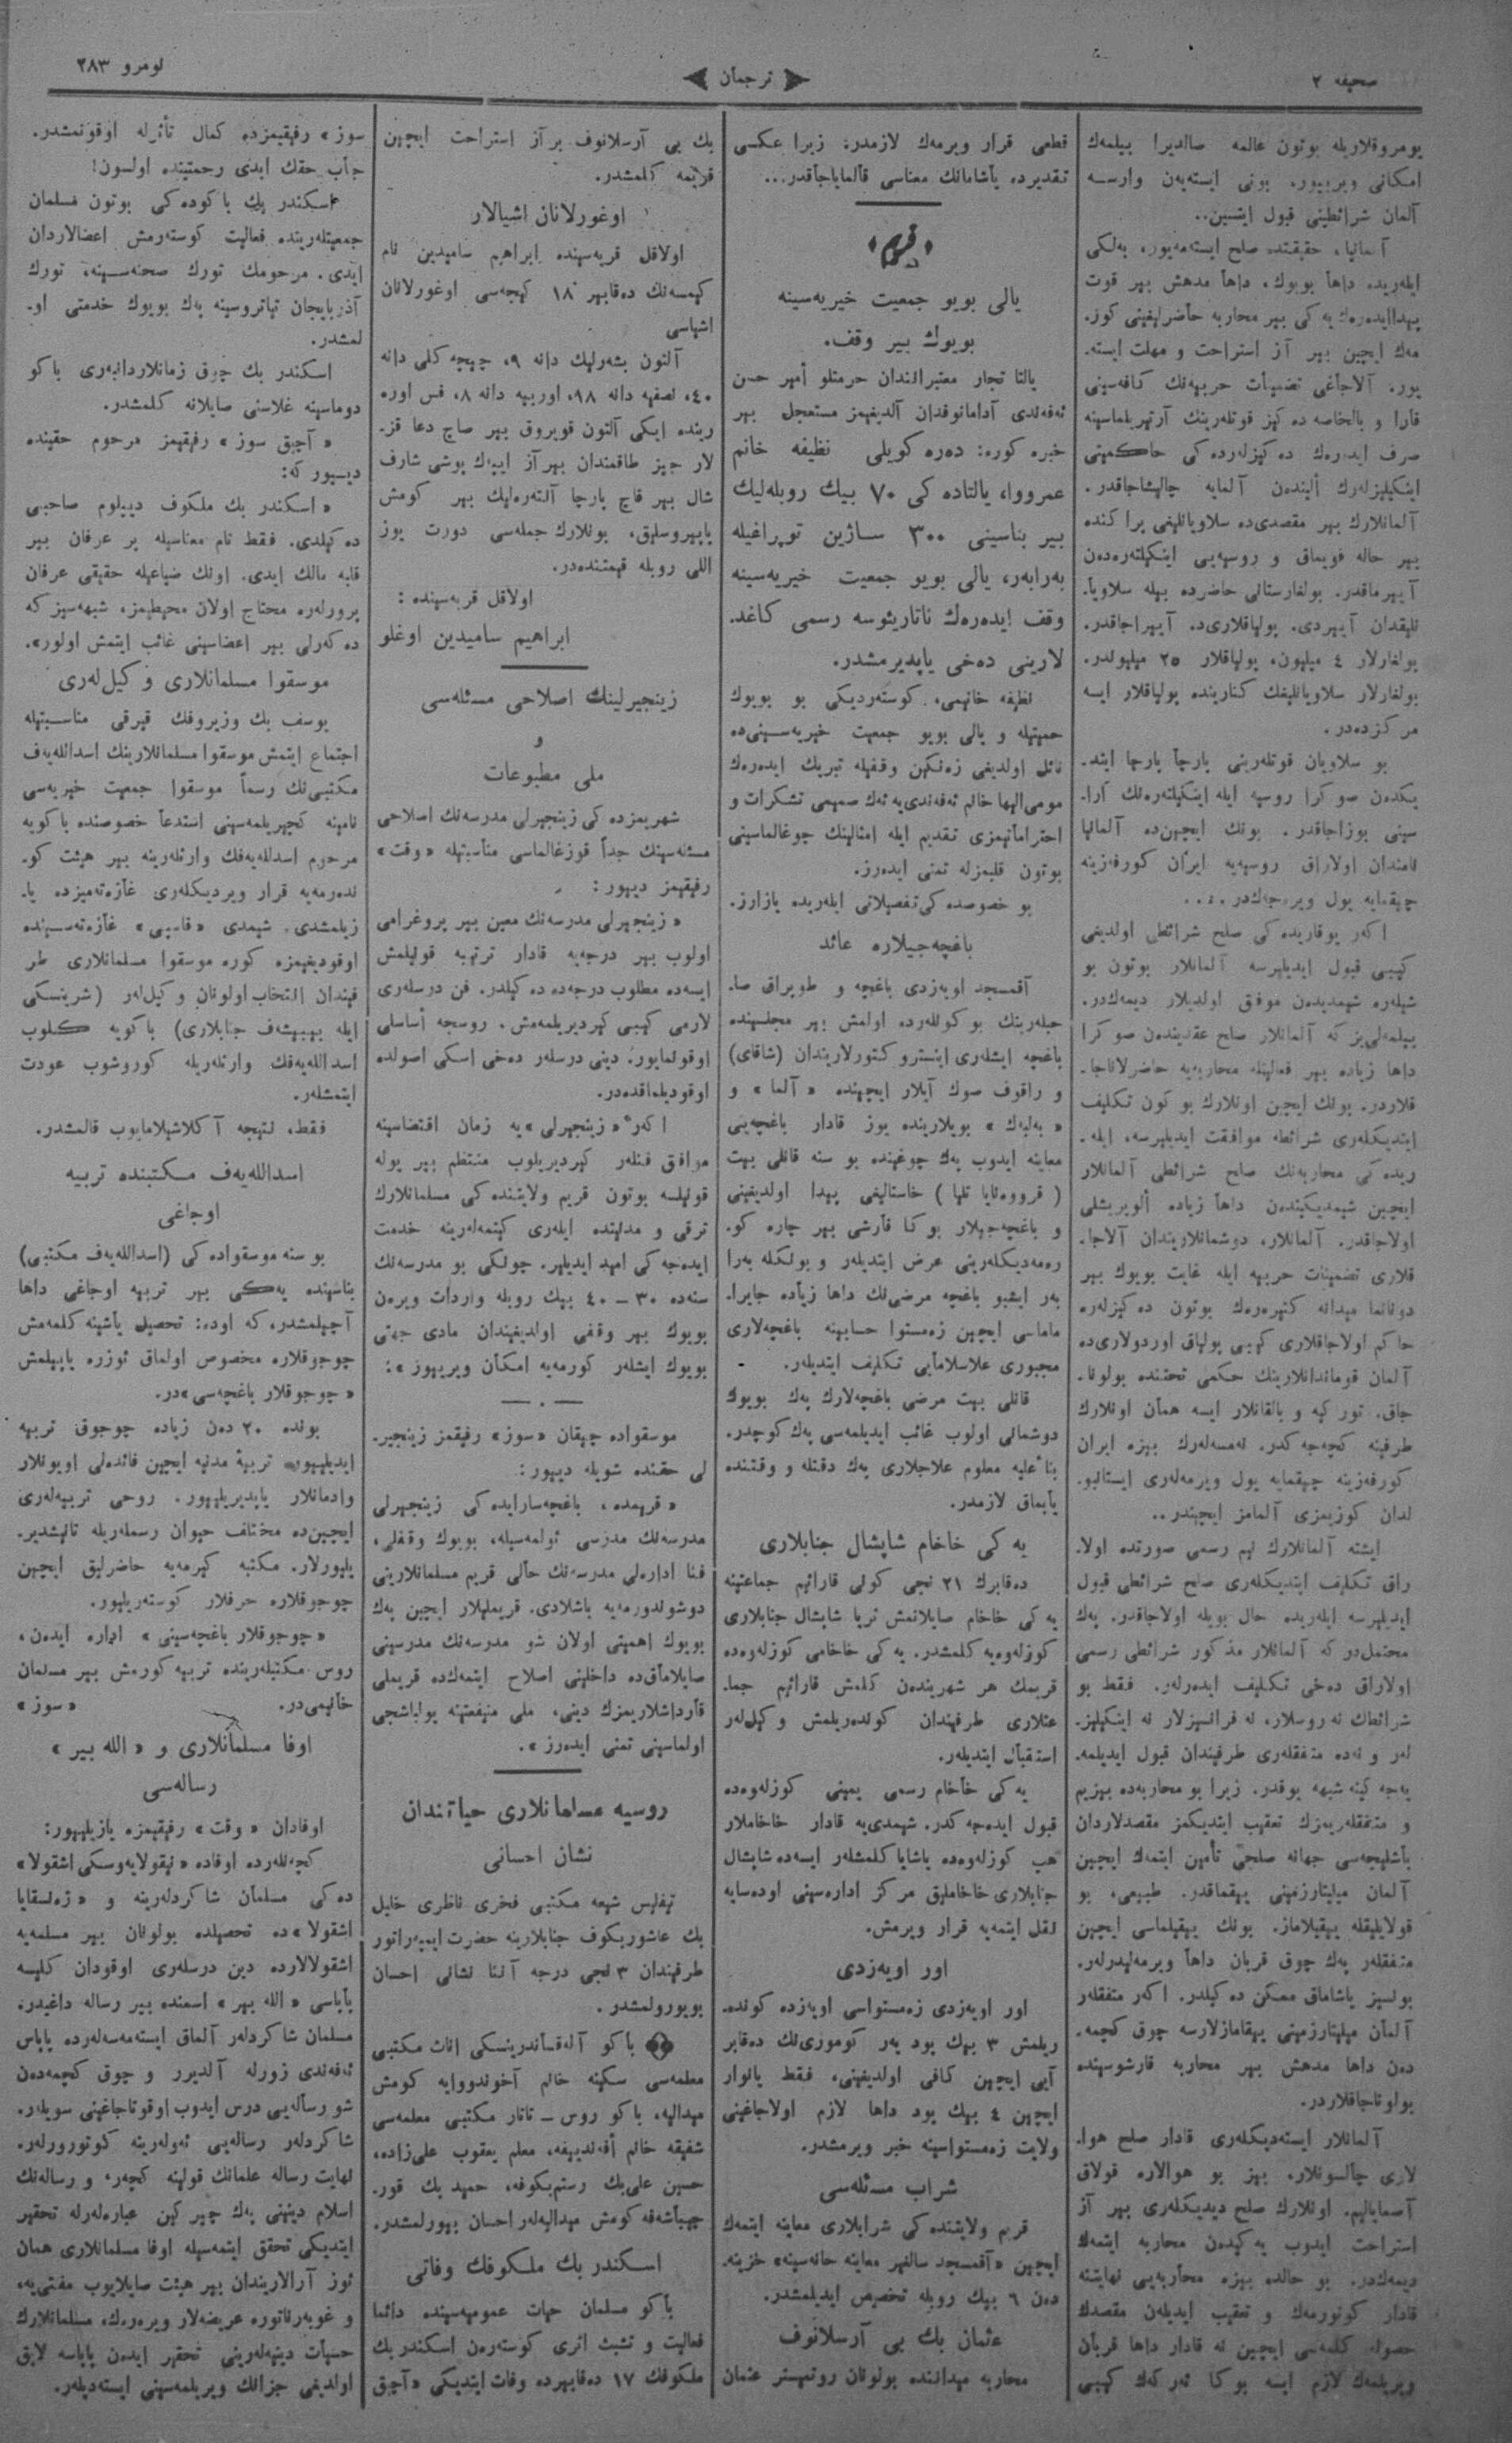 صحیفه ٢
ترجمان
نومرو ٢٨٣
یومروقلاریله بوتون عالمه صالدیرا بیلمەك
امکانی ویرییور. بونی ایستەیەن وارسە
آلمان شرائطینی قبول ایتسین..
آلمانیا، حقیقتدە صلح ایستەمەیور، بەلکی
ایلەریدە داها بویوك، داها مدهش بیر قوت
پیداایدەرەك یەکی بیر محاربە حاضرلیغینی کوز.
مەك ایچین بیر آز استراحت و مهلت ایستە.
یور. آلاجاغی تضمینات حربیەنك کافەسینی
قارا و بالخاصە دەکیز قوتلەرینك آرتیریلماسینە
صرف ایدەرەك دەکیزلەردەکی حاکمیتی
اینکیلیزلەرك ألیندەن آلمایە چالیشاجاقدر.
آلمانلارك بیر مقصدی دە سلاویانلیغی براکندە
بیر حالە قویماق و روسیەیی اینکیلتەرەدەن
آییرماقدر. بولغارستانی حاضردە بیلە سلاویا.
نلیقدان آییردی. بولیاقلاری دە آییراجاقدر.
بولغارلار ٤ میلیون، بولیاقلار ٢٥ میلیوندر.
بولغارلار سلاویانلیغك کنارندە بولیاقلار ایسە
مرکزدەدر.
بو سلاویان قوتلەرینی پارچا پارچا ایتد.
یکدەن صوکرا روسیە ایلە اینکیلتەرەنك آرا.
سینی بوزاجاقدر. بونك ایچین دە آلمانیا
نامندان اولاراق روسیەیە ایران کورفەزینە
چیقمایە یول ویرەجەکدر....
اکەر یوقاریدەکی صلح شرائطی اولدیغی
کیبی قبول ایدیلیرسە آلمانلار بوتون بو
شیلەرە شیمدیدەن موفق اولدیلار دیمەکدر.
بیلمەلی یز کە آلمانلار صلح عقدیندەن صوکرا
داها زیادە بیر فعالیتلە محاربەیە حاضرلاناجا.
قلاردر. بونك ایچین اونلارك بوکون تکلیف
ایتدیکلەری شرائطە موافقت ایدیلیرسە، ایلە.
ریدەکی محاربەنك صلح شرائطی آلمانلار
ایچین شیمدیکیندەن داها زیادە ألویریشلی
اولاجاقدر. آلمانلار، دوشمانلاریندان آلاجا.
قلاری تضمینات حربیە ایلە غایت بویوك بیر
دونانما میدانە کتیرەرەك بوتون دەکیزلەرە
حاکم اولاجاقلاری کیبی بولیاق اوردولاری دە
آلمان قوماندانلارینك حکمی تحتندە بولونا.
جاق. تورکیە و بالقانلار ایسە همان اونلارك
طرفینە کچەجەکدر. نەمسەلەرك بیزە ایران
کورفەزینە چیقمایە یول ویرمەلەری ایستانبو.
لدان کوزیمزی آلمامز ایچیندر..
ایشتە آلمانلارك نیم رسمی صورتدە اولا.
راق تکلیف ایتدیکلەری صلح شرائطی قبول
ایدیلیرسە ایلەریدە حال بویلە اولاجاقدر. پەك
محتمل در کە آلمانلار مذکور شرائطی رسمی
اولاراق دەخی تکلیف ایدەرلەر. فقط بو
شرائطك نە روسلار، نە فرانسیزلار نە اینکیلیز.
لەر و نەدە متفقلەری طرفیندان قبول ایدیلمە.
یەجەکینە شبهە یوقدر. زیرا بو محاربەدە بیزیم
و متفقلەریمزك تعقیب ایتدیکمز مقصدلاردان
باشلیجەسی جهانە صلحی تأمین ایتمەك ایچین
آلمان میلیتارزمینی ییقماقدر. طبیعی، بو
قولایلیقلە ییقیلاماز. بونك ییقیلماسی ایچین
متفقلەر پەك چوق قربان داها ویرمەلیدرلەر.
بونسیز یاشاماق ممکن دەکیلدر. اکەر متفقلەر
آلمان میلیتارزمینی ییقامازلارسە چوق کچمە.
دەن داها مدهش بیر محاربە قارشوسیندە
بولوناجاقلاردر.
آلمانلار ایستەدیکلەری قادار صلح هوا.
لاری چالسونلار. بیز بو هوالارە قولاق
آصمایالیم. اونلارك صلح دیدیکلەری بیر آز
استراحت ایدوب یەکیدن محاربە ایتمەك
دیمەکدر. بو حالدە بیزە محاربەیی نهایتنە
قادار کوتورمەك و تعقیب ایدیلەن مقصدك
حصولە کلمەسی ایچین نە قادار داها قربان
ویریلمەك لازم ایسە بوکا ئەرکەك کیبی
قطعی قرار ویرمەك لازمدر؛ زیرا عکسی
تقدیردە یاشامانك معناسی قالمایاجاقدر...
«قریم»
یالی بویو جمعیت خیریەسینە
بویوك بیر وقف.
یالتا تجار معتبراندان حرمتلو أمیر حسن
ئەفەندی آدامانوفدان آلدیغیمز مستعجل بیر
خبرە کورە: دەرە کویلی نظیفە خانم
عمرووا، یالتادەکی ٧٠ بیك روبلەلیك
بیر بناسینی ٣٠٠ ساژین توپراغیلە
بەرابەر، یالی بویو جمعیت خیریەسینە
وقف ایدەرەك ناتاریئوسە رسمی کاغد.
لارینی دەخی یاپدیرمشدر.
نظیفە خانیمی، کوستەردیکی بو بویوك
حمیتیلە و یالی بویو جمعیت خیریەسینی دە
نائل اولدیغی زەنکین وقفیلە تبریك ایدەرەك
مومی الیها خانم ئەفەندی یە ئەك صمیمی تشکرات و
احتراماتیمزی تقدیم ایلە امثالینك چوغالماسینی
بوتون قلبمزلە تمنی ایدەرز.
بو خصوصدەکی تفصیلاتی ایلەریدە یازارز.
باغچەجیلارە عائد
آقمسجد اویەزدی باغچە و طوپراق صا.
حبلەرینك بو کونلەردە اولمش بیر مجلسیندە
باغچە ایشلەری اینستروکتورلاریندان (شاقای)
و راقوف صوك آیلار ایچیندە «آلما» و
«بەلبەك» بویلاریندە یوز قادار باغچەیی
معاینە ایدوب پەك چوغیندە بو سنە قانلی بیت
(قرووەنایا تلیا) خاستالیغی پیدا اولدیغینی
و باغچەجیلار بوکا قارشی بیر چارە کو.
رەمەدیکلەرینی عرض ایتدیلەر و بونکلە بەرا
بەر ایشبو باغچە مرضی نك داها زیادە جایرا.
ماماسی ایچین زەمستوا حسابینە باغچەلاری
مجبوری علاسلامایی تکلیف ایتدیلەر.
قانلی بیت مرضی باغچەلارك پەك بویوك
دوشمانی اولوب غائب ایدیلمەسی پەك کوچدر.
بناءعلیە معلوم علاجلاری پەك دقتلە و وقتندە
یاپماق لازمدر.
یەکی خاخام شاپشال جنابلاری
دەقابرك ٢١ نجی کونی قارائیم جماعتینە
یەکی خاخام صایلانمش تریا شاپشال جنابلاری
کوزلەوەیە کلمشدر. یەکی خاخامی کوزلەوەدە
قریمك هر شهریندەن کلمش قارائیم جما.
عتلاری طرفیندان کوندەریلمش وکیل لەر
استقبال ایتدیلەر.
یەکی خاخام رسمی یمینی کوزلەوەدە
قبول ایدەجەکدر. شیمدی یە قادار خاخاملار
هپ کوزلەوەدە یاشایا کلمشلەر ایسەدە شاپشال
جنابلاری خاخاملیق مرکز ادارەسینی اودەسایە
نقل ایتمەیە قرار ویرمش.
اور اویەزدی
اور اویەزدی زەمستواسی اویەزدە کوندە.
ریلمش ٣ بیك پود یەر کوموری نك دەقابر
آیی ایچین کافی اولدیغینی، فقط یانوار
ایچین ٤ بیك پود داها لازم اولاجاغینی
ولایت زەمستواسینە خبر ویرمشدر.
شراب مسئلەسی
قریم ولایتندەکی شرابلاری معاینە ایتمەك
ایچین «آقمسجد سانیر معاینە خانەسینە» خزینە.
دەن ٦ بیك روبلە تخصیص ایدیلمشدر.
عثمان بك بی آرسلانوف
محاربە میداننده بولونان روتمیستر عثمان
بك بی آرسلانوف بر آز استراحت ایچین
قریمە کلمشدر.
اوغورلانان اشیالار
اولاقل قریەسیندە ابراهیم سامیدین نام
کیمسەنك دەقابیر ١٨ کیجەسی اوغورلانان
اشیاسی
آلتون بشەرلیك دانە ٩، چیچەکلی دانە
٤٠، نصفیە دانە ١٨، اوربیە دانە ٨، فس اوزە
ریندە ایکی آلتون قویروق بیر صاچ دعا قز.
لار جیز طاقمندان بیر آز ایپك پوشی شارف
شال بیر قاچ پارچا آلتەرەلیك بیر کومش
پاپیروسلیق، بونلارك جملەسی دورت یوز
اللی روبلە قیمتندەدر.
اولاقل قریەسیندە:
ابراهیم سامیدین اوغلو
زینجیرلینك اصلاحی مسئلەسی
و
ملی مطبوعات
شهریمزدەکی زینجیرلی مدرسەنك اصلاحی
مسئلەسینك جداً قوزغالماسی مناسبتیلە «وقت»
رفیقیمز دییور:
«زینجیرلی مدرسەنك معین بیر پروغرامی
اولوب بیر درجەیە قادار ترتیبە قولیلمش
ایسەدە مطلوب درجەدە دەکیلدر. فن درسلەری
لازمی کیبی کیردیریلمەمش. روسجە أساسلی
اوقونمایور. دینی درسلەر دەخی اسکی اصولدە
اوقودیلماقدەدر.
اکەر «زینجیرلی» یە زمان اقتضاسینە
موافق فنلەر کیردیریلوب منتظم بیر یولە
قونیلسە بوتون قریم ولایتندەکی مسلمانلارك
ترقی و مدنیتدە ایلەری کیتمەلەرینە خدمت
ایدەجەکی امید ایدیلیر. چونکی بو مدرسەنك
سنەدە ٣٠ – ٤٠ بیك روبلە واردات ویرەن
بویوك بیر وقفی اولدیغیندان مادی جهتی
بویوك ایشلەر کورمەیە امکان ویرییور»:
موسقوادە چیقان «سوز» رفیقمز زینجیر.
لی حقندە شویلە دییور:
«قریمدە، باغچەسارایدەکی زینجیرلی
مدرسەنك مدرسی ئولمەسیلە، بویوك وقفلی،
فنا ادارەلی مدرسەنك حالی قریم مسلمانلارینی
دوشوندورمەیە باشلادی. قریملیلار ایچین پەك
بویوك اهمیتی اولان شو مدرسەنك مدرسینی
صایلاماق دە داخلینی اصلاح ایتمەك دە قریملی
قارداشلاریمزك دینی، ملی منفعتنە یولباشجی
اولماسینی تمنی ایدەرز».
روسیە مسلمانلاری حیاتندان
نشان احسانی
تیفلیس شیعە مکتبی فخری ناظری خلیل
بك عاشوربکوف جنابلارینە حضرت ایمپەراتور
طرفیندان ٣ نجی درجە آننا نشانی احسان
بویورولمشدر.
باکو آلەقساندرینسکی اناث مکتبی
معلمەسی سکینە خانم آخوندووایە کومش
میدالیە، باکو روس – تاتار مکتبی معلمەسی
شفیقە خانم أفەندییفە، معلم یعقوب علی زادە،
حسین علی بك رستم بکوفە، حمید بك قور.
جیباشەفە کومش میدالیەلەر احسان بیورلمشدر.
اسکندر بك ملکوفك وفاتی
باکو مسلمان حیات عمومیەسیندە دائما
فعالیت و تشبث اثری کوستەرەن اسکندر بك
ملکوفك ١٧ دەقابیردە وفات ایتدیکی «آچق
سوز» رفیقیمزدە کمال تأثرلە اوقونمشدر.
جناب حقك ابدی رحمتیندە اولسون!
اسکندر بك باکودەکی بوتون مسلمان
جمعیتلەریندە فعالیت کوستەرمش اعضالاردان
ایدی. مرحومك تورك صحنەسینە، تورك
آذربایجان تیاتروسینە پەك بویوك خدمتی او.
لمشدر.
اسکندر بك چوق زمانلاردانبەری باکو
دوماسینە غلاسنی صایلانە کلمشدر.
«آچیق سوز» رفیقیمز مرحوم حقیندە
دییور کە:
«اسکندر بك ملکوف دیپلوم صاحبی
دەکیلدی. فقط تام معناسیلە بر عرفان بیر
قلبە مالك ایدی. اونك ضیاعیلە حقیقی عرفان
پرورلەرە محتاج اولان محیطیمز، شبهەسیز کە
دەکەرلی بیر اعضاسینی غائب ایتمش اولور».
موسقوا مسلمانلاری وکیل لەری
یوسف بك وزیروفك قیرقی مناسبتیلە
اجتماع ایتمش موسقوا مسلمانلارینك اسداللەیەف
مکتبی نك رسماً موسقوا جمعیت خیریەسی
نامینە کچیریلمەسینی استدعا خصوصندە باکویە
مرحوم اسداللەیەفك وارثلەرینە بیر هیئت کو.
ندەرمەیە قرار ویردیکلەری غازەتەمیزدە یا.
زیلمشدی. شیمدی «قاسپی» غازەتەسیندە
اوقودیغیمزە کورە موسقوا مسلمانلاری طر
فیندان انتخاب اولونان وکیل لەر (شرینسکی
ایلە بیبیشەف جنابلاری) باکویە کلوب
اسداللەیەفك وارثلەریلە کوروشوب عودت
ایتمشلەر.
فقط، نتیجە آکلاشیلامایوب قالمشدر.
اسداللەیەف مکتبندە تربیە
اوجاغی
بو سنە موسقوادەکی (اسداللەیەف مکتبی)
بناسیندە یەکی بیر تربیە اوجاغی داها
آچیلمشدر، کە اودە: تحصیل یاشینە کلمەمش
چوجوقلارە مخصوص اولماق ئوزرە یاپیلمش
«چوجوقلار باغچەسی»در.
بوندە ٢٠ دەن زیادە چوجوق تربیە
ایدیلییور. تربیۀ مدنیە ایچین فائدەلی اویونلار
وادمانلار یاپدیریلییور. روحی تربیەلەری
ایچین دە مختلف حیوان رسملەریلە تانیشدیر.
یلیورلار. مکتبە کیرمەیە حاضرلیق ایچین
چوجوقلارە حرفلار کوستەریلیور.
«چوجوقلار باغچەسینی» ادارە ایدەن،
روس مکتبلەریندە تربیە کورمش بیر مسلمان
خانیمی در. «سوز»
اوفا مسلمانلاری و «الله بیر»
رسالەسی
اوفادان «وقت» رفیقیمزە یازیلییور:
کچەنلەردە اوفادە «نیقولایەوسکی اشقولا»
دەکی مسلمان شاکردلەرینە و «زەمسقایا
اشقولا»دە تحصیلدە بولونان بیر مسلمەیە
اشقولالاردە دین درسلەری اوقودان کلیسە
پاپاسی «الله بیر» اسمندە بیر رسالە داغیدر.
مسلمان شاکردلەر آلماق ایستەمەسەلەردە پاپاس
ئەفەندی زورلە آلدیرر و چوق کچمەدەن
شو رسالەیی درس ایدوب اوقوتاجاغینی سویلەر.
شاکردلەر رسالەیی ئەولەرینە کوتورورلەر.
نهایت رسالە علمانك قولینە کچەر، و رسالەنك
اسلام دینینی پەك چیرکین عبارەلەرلە تحقیر
ایتدیکی تحقق ایتمەسیلە اوفا مسلمانلاری همان
ئوز آرالاریندان بیر هیئت صایلایوب مفتی یە،
و غوبەرناتورە عریضەلار ویرەرەك، مسلمانلارك
حسیات دینیەلەرینی تحقیر ایدەن پاپاسە لایق
اولدیغی جزانك ویریلمەسینی ایستەدیلەر.